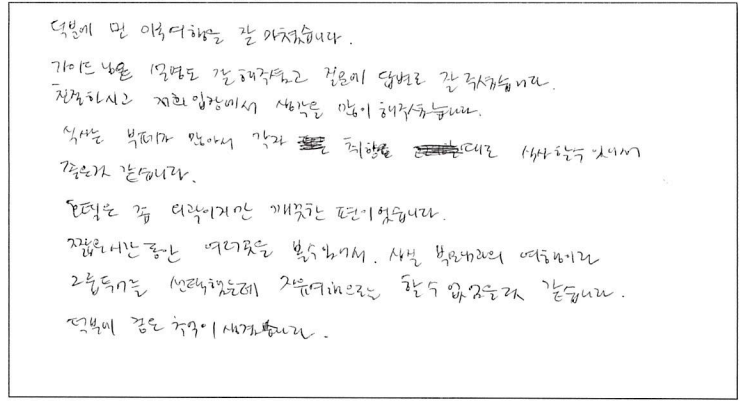 덕분에 먼 미국여행을 잘 마쳤습니다.
가이드님은 설명도 잘 해주셨고 질문에 답변도 잘 주셨습니다.
친절하시고 저희 입장에서 생각을 많이 해주셨습니다.
식사는 부페가 많아서 각자 취향대로 식사할수 있어서
좋은것 같습니다.
호텔은 좀 외곽이지만 깨끗한 편이었습니다.
짧은시간동안 여러곳을 볼수있어서. 과의 여행이라
그룹투어를 선택했는데 자유여행으로는 할 수 없었을것 같습니다.
덕분에 좋은 추억이 생겼습니다.